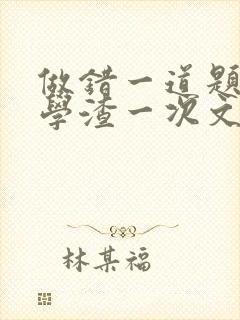 做錯一道題
學渣一次文
林某福